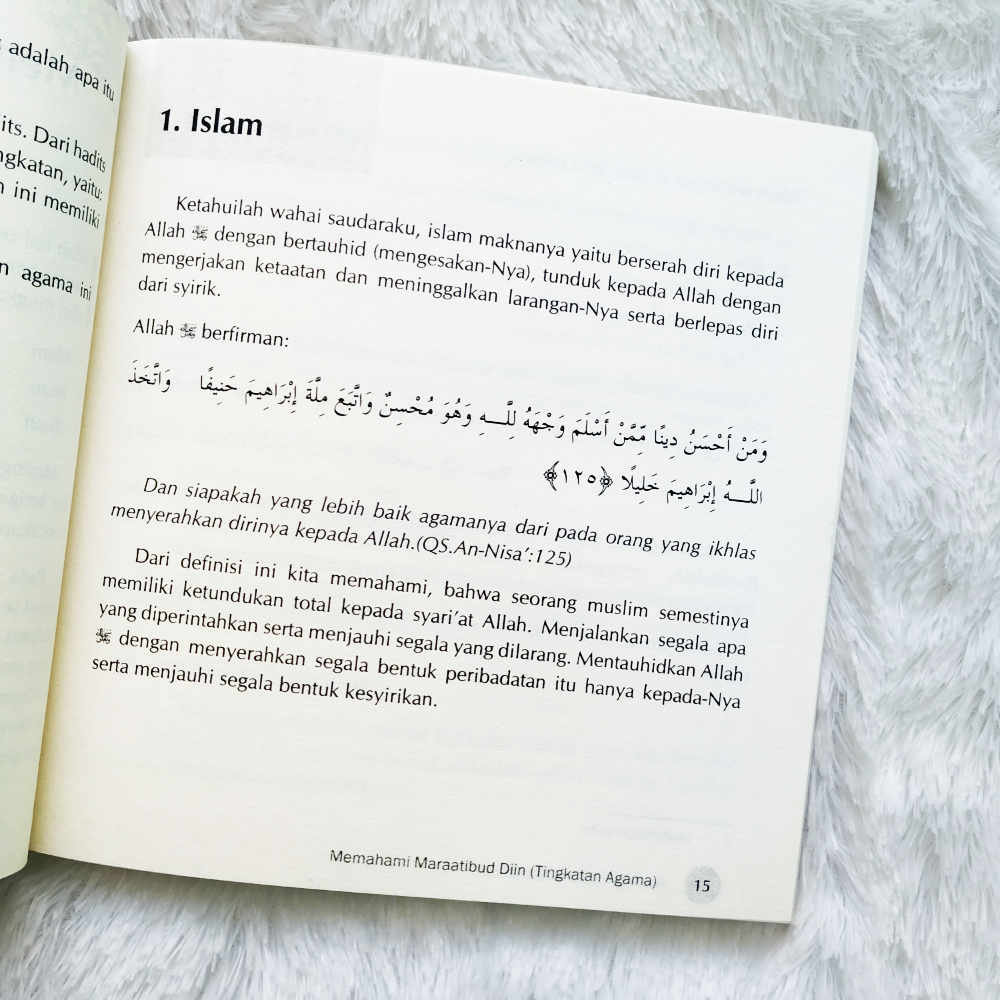 adalah apa itu
its. Dari hadits
ngkatan, yaitu:
ini memiliki
agama ini
1. Islam
Ketahuilah wahai saudaraku, islam maknanya yaitu berserah diri kepada
Allah ﷻ dengan bertauhid (mengesakan-Nya), tunduk kepada Allah dengan
mengerjakan ketaatan dan meninggalkan larangan-Nya serta berlepas diri
dari syirik.
Allah ﷻ berfirman:
وَمَنْ أَحْسَنُ دِينًا مِّمَّنْ أَسْلَمَ وَجْهَهُ لِلَّـهِ وَهُوَ مُحْسِنٌ وَاتَّبَعَ مِلَّةَ إِبْرَاهِيمَ حَنِيفًا وَاتَّخَذَ
اللَّـهُ إِبْرَاهِيمَ خَلِيلًا ﴿١٢٥﴾
Dan siapakah yang lebih baik agamanya dari pada orang yang ikhlas
menyerahkan dirinya kepada Allah.(QS.An-Nisa’:125)
Dari definisi ini kita memahami, bahwa seorang muslim semestinya
memiliki ketundukan total kepada syari’at Allah. Menjalankan segala apa
yang diperintahkan serta menjauhi segala yang dilarang. Mentauhidkan Allah
ﷻ dengan menyerahkan segala bentuk peribadatan itu hanya kepada-Nya
serta menjauhi segala bentuk kesyirikan.
Memahami Maraatibud Diin (Tingkatan Agama) 15